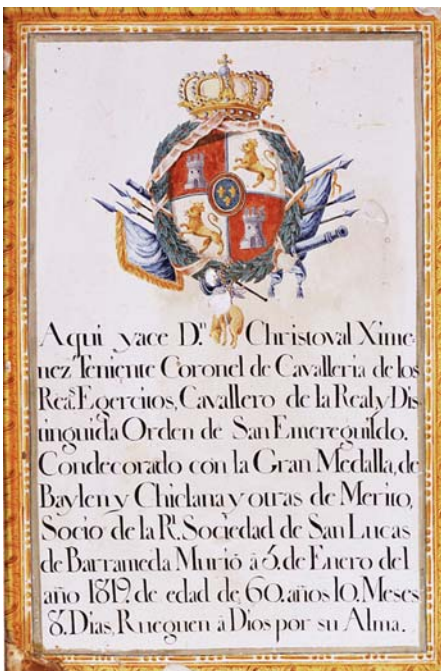 Aqui yace D.ⁿ Christoval Xime-
nez Teniente Coronel de Cavalleria de los
Rea.ˢ Egercitos, Cavallero de la Real y Dis-
tinguida Orden de San Emereguildo.
Condecorado con la Gran Medalla, de
Baylen y Chiclana y otras de Merito,
Socio de la R.ˡ Sociedad de San Lucas
de Barrameda Murió â 5. de Enero del
año 1819. de edad de 60. años 10. Meses
8. Dias, Rueguen â Dios por su Alma.